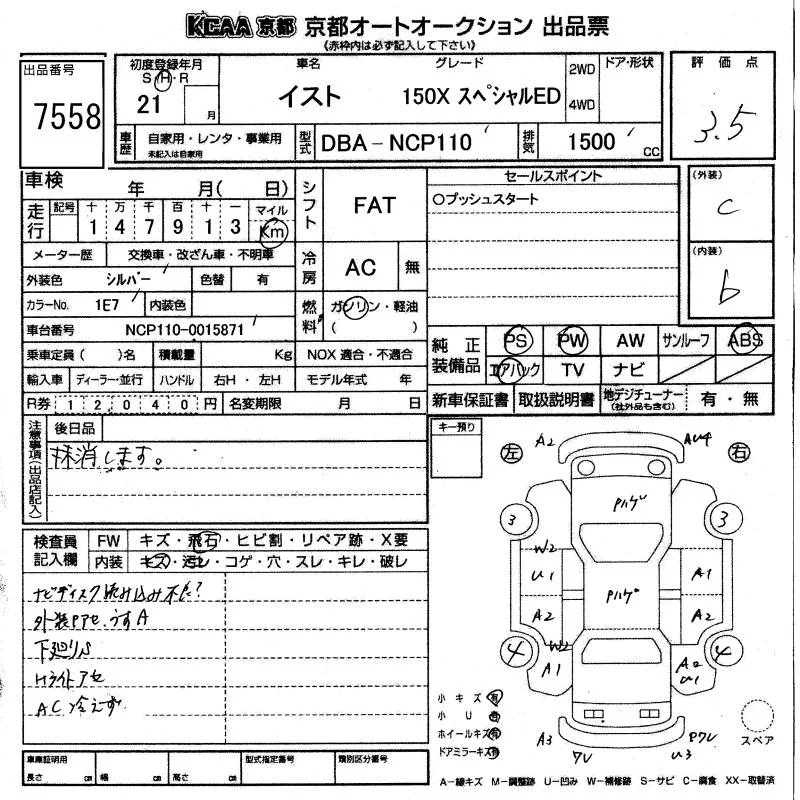 KCAA 京都 京都オートオークション 出品票
(赤枠内は必ず記入して下さい)
出品番号
7558
初度登録年月
S・H・R
21 月
車名
イスト
グレード
150X スペシャルED
2WD
4WD
ドア・形状
評価点
3.5
車歴
自家用・レンタ・事業用
未記入は自家用
型式
DBA-NCP110
排気
1500 cc
車検 年 月( 日)
走行
記号 十 万 千 百 十 一 マイル
1 4 7 9 1 3 Km
シフト
FAT
セールスポイント
○プッシュスタート
(外装)
C
(内装)
b
メーター歴 交換車・改ざん車・不明車
外装色 シルバー 色替 有
冷房
AC 無
カラーNo. 1E7 内装色
燃料
ガソリン・軽油
( )
車台番号 NCP110-0015871
乗車定員( )名 積載量 Kg NOX 適合・不適合
輸入車 ディーラー・並行 ハンドル 右H・左H モデル年式 年
R券 1 2 0 4 0 円 名変期限 月 日
純正装備品
PS PW AW サンルーフ ABS
エアバック TV ナビ
新車保証書 取扱説明書 地デジチューナー(社外品も含む) 有・無
注意事項(出品店記入)
後日品
抹消します。
キー預り
左
右
A2
AU4
Pハゲ
3
3
W2
U1
A1
Pハゲ
A2
A2
W2
4
4
A1
A2
U1
A3
ワレ
Pワレ
U3
スペア
検査員記入欄
FW キズ・飛石・ヒビ割・リペア跡・X要
内装 キズ・汚レ・コゲ・穴・スレ・キレ・破レ
ナビディスク読み込み不良?
外装Pアセ、うすA
下廻りS
Hライトアセ
AC冷えず
小キズ 有
小U 有
ホイールキズ 有
ドアミラーキズ 有
車庫証明用
長さ cm 幅 cm 高さ cm
型式指定番号
類別区分番号
A-線キズ M-調整跡 U-凹み W-補修跡 S-サビ C-腐食 XX-取替済